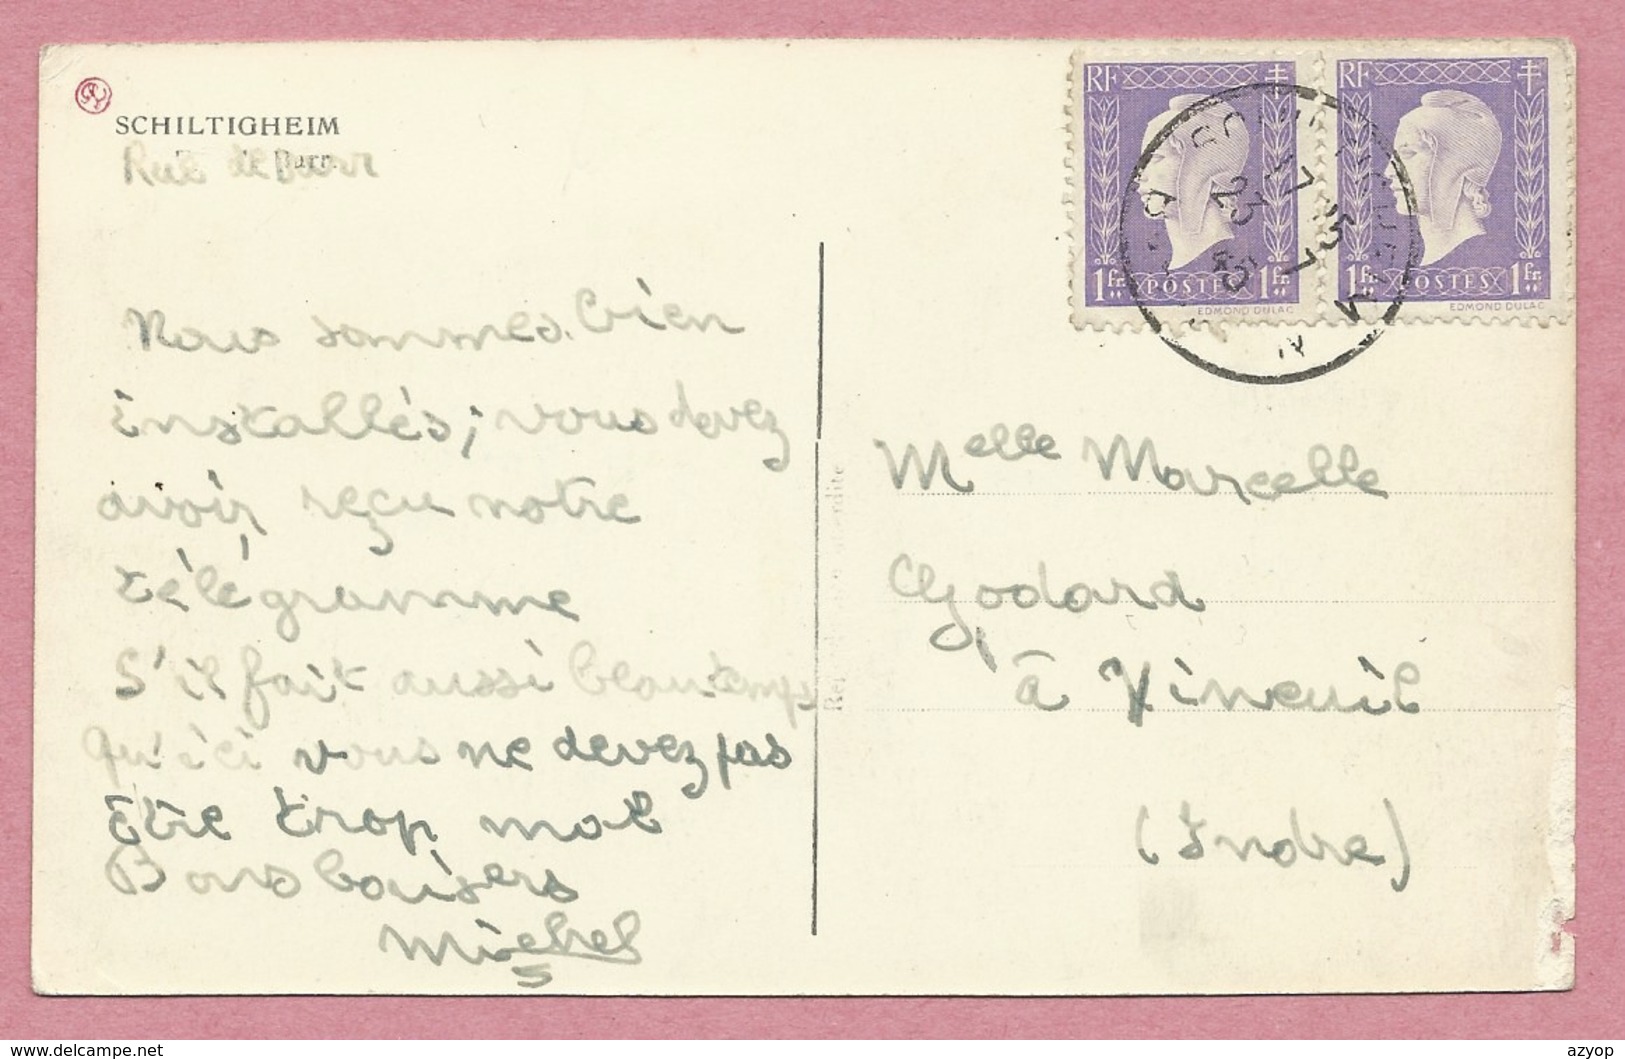 SCHILTIGHEIM
Rue de Barr
Nous sommes bien
installés; vous devez
avoir reçu notre
télégramme
S'il fait aussi beau temps
qu'ici vous ne devez pas
être trop mal
Bons baisers
Michel
RF
1fr. POSTES 1fr.
EDMOND DULAC
RF
1fr. POSTES 1fr.
EDMOND DULAC
17
23 7
45
Melle Marcelle
Godard
à Vineuil
(Indre)
delcampe.net
azyop